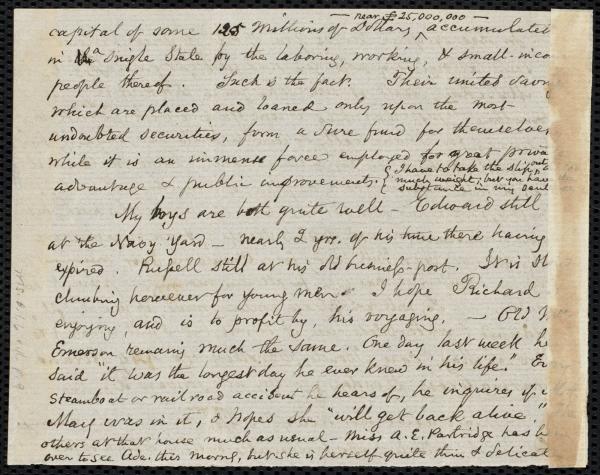 — near £25,000,000 —
capital of some 125 millions of Dollars, accumulated
in a single State by the laboring, working, & small-inco
people thereof. Such is the fact. Their united savin
which are placed and loaned only upon the most
undoubted securities, form a sure fund for themselves
while it is an immense force employed for great priva
advantage & public improvements. { I have to take the slip out,
{ much weight; but you have
{ substance in my
My boys are both quite well — Edward still
at the Navy Yard — nearly 2 yrs. of his time there having
expired. Russell still at his old business-post. It is
climbing however for young men. I hope Richard
enjoying, and is to profit by, his voyaging. — Old
Emerson remains much the same. One day last week h
said "it was the longest day he ever knew in his life." Ev
steamboat or rail road accident he hears of, he inquires if
Mary was in it, & hopes she "will get back alive."
others at that house much as usual — Miss A. E. Partridge has b
over to see Ade. this morng, but she is herself quite thin & delicat